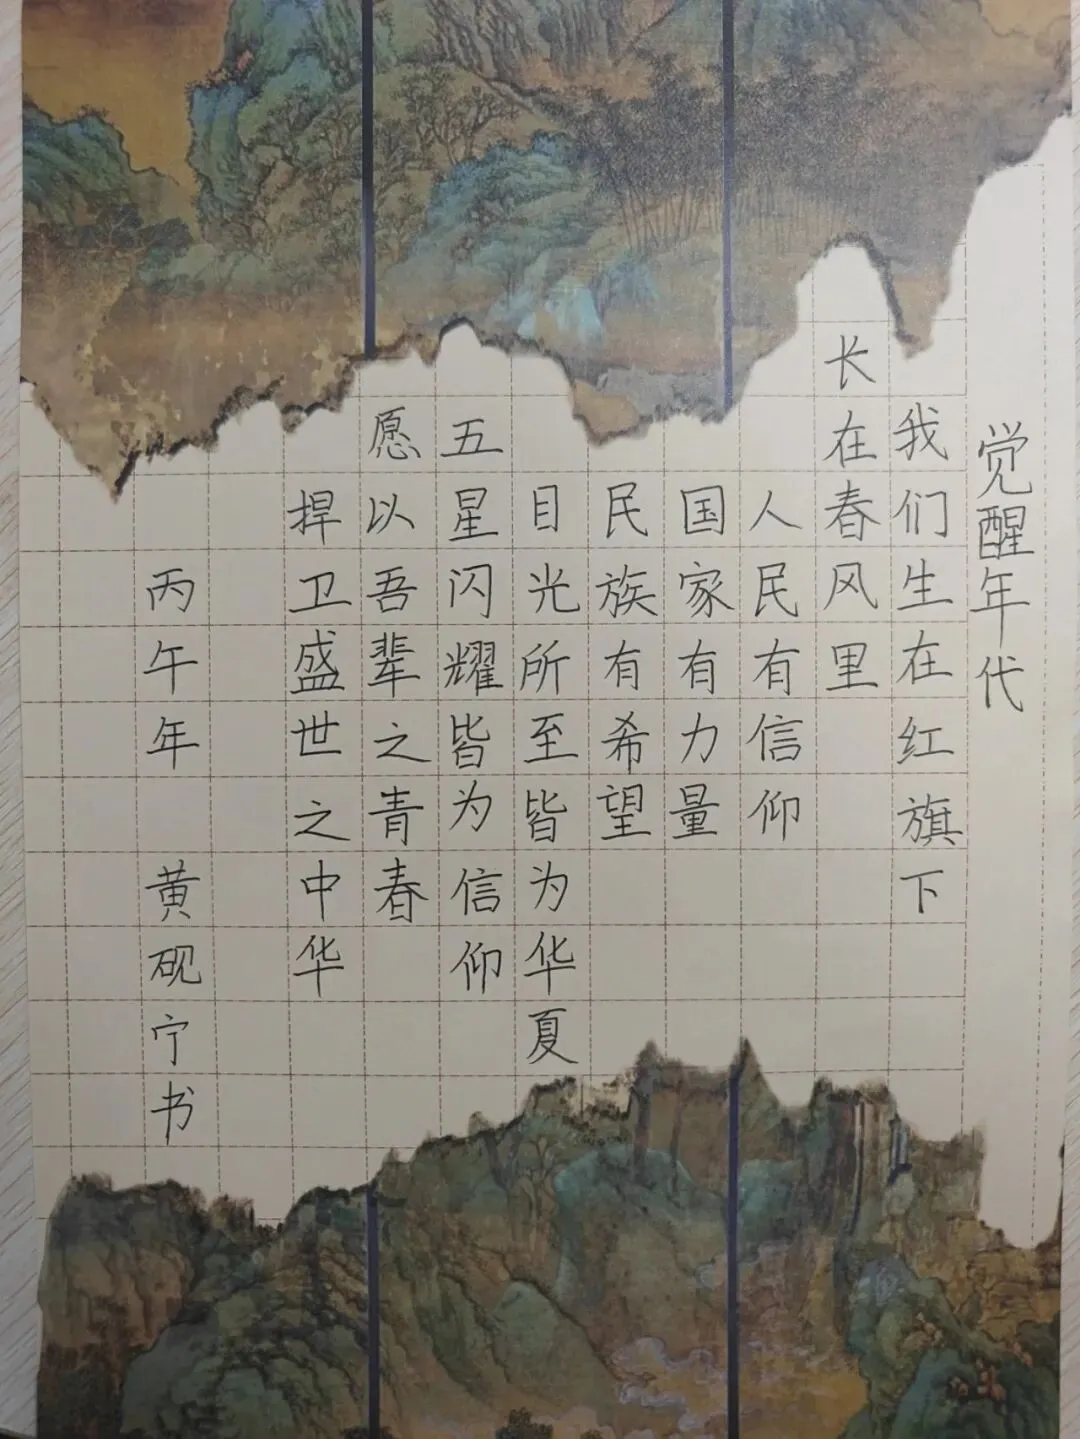 觉醒年代
我们生在红旗下
长在春风里
人民有信仰
国家有力量
民族有希望
目光所至皆为华夏
五星闪耀皆为信仰
愿以吾辈之青春
捍卫盛世之中华
丙午年 黄砚宁书